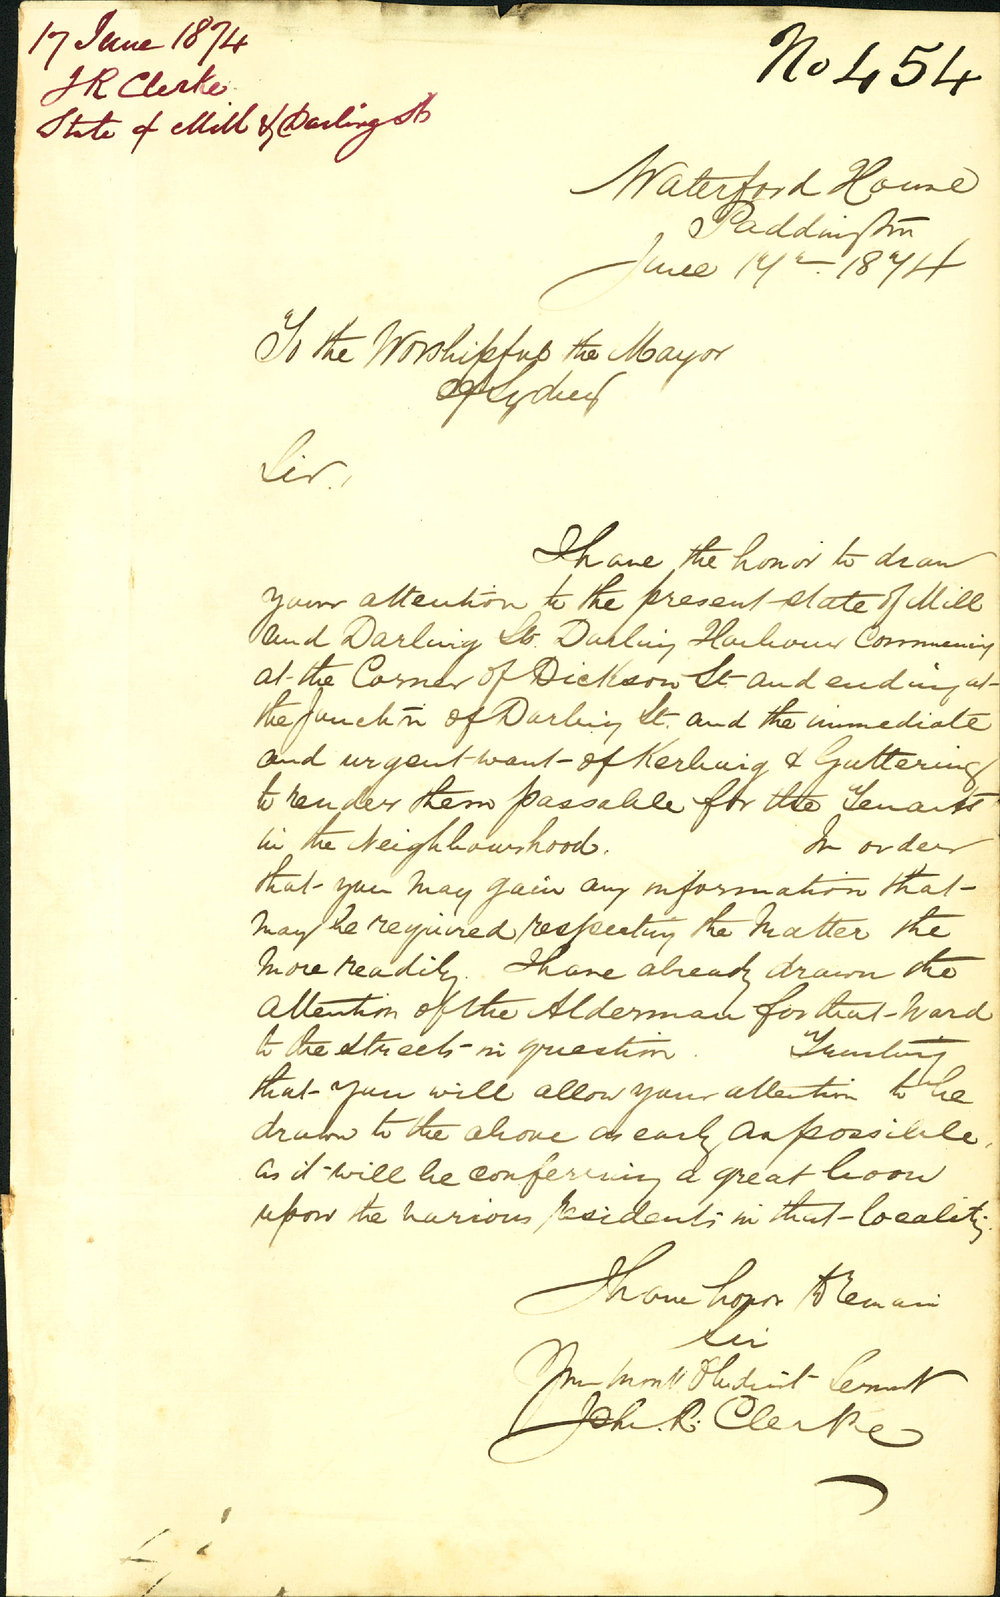 17 June 1874
J R Clerke
State of Mill & Darling Sts
No 454
Waterford House
Paddington
June 17th 1874
To the Worshipful the Mayor
of Sydney
Sir,
I have the honor to draw
your attention to the present state of Mill
and Darling St. Darling Harbour Commencing
at the Corner of Dickson St and ending at
the junctn of Darling St. and the immediate
and urgent want of Kerbing & Guttering
to render them passable for the Tenants
in the Neighbourhood. In order
that you may gain any information that
may be required respecting the Matter the
more readily. I have already drawn the
attention of the Alderman for that Ward
to the streets in question. Trusting
that you will allow your attention to be
drawn to the above as early as possible,
as it will be conferring a great boon
upon the various residents in that locality.
I have honor to Remain
Sir
Your most Obedient Servant
John. R. Clerke